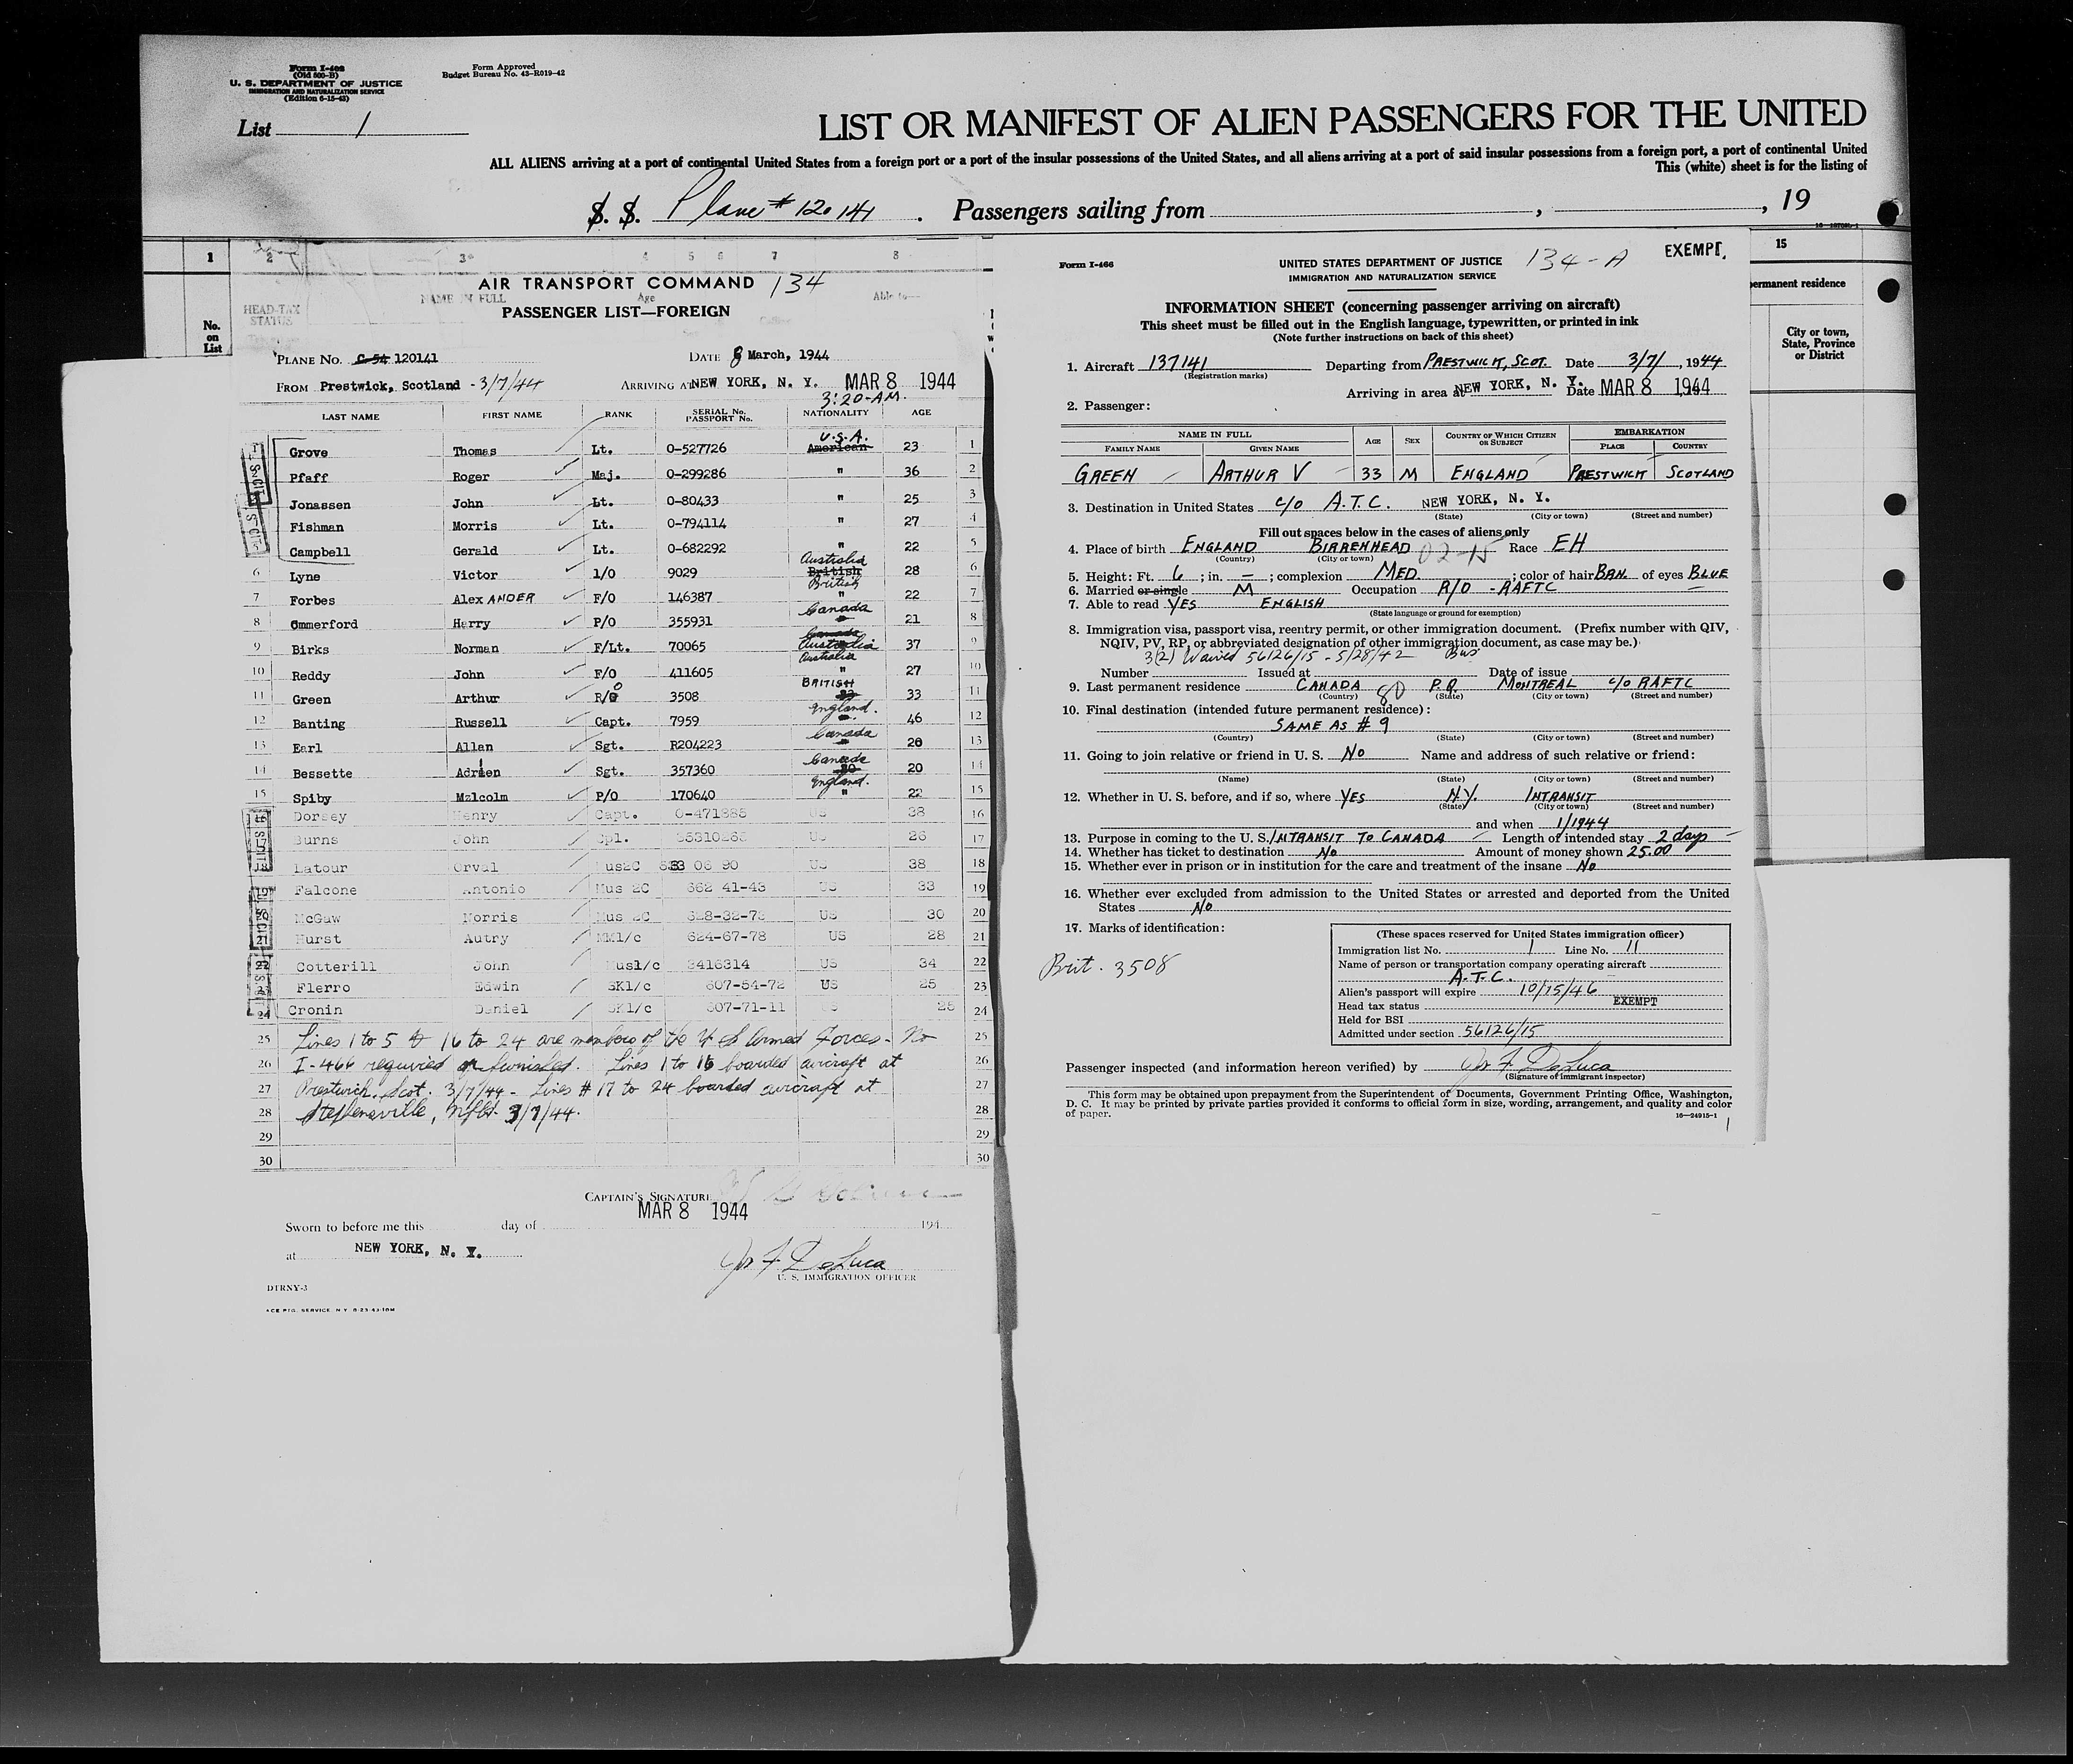 Form I-402
(Old 500-B)
U. S. DEPARTMENT OF JUSTICE
IMMIGRATION AND NATURALIZATION SERVICE
(Edition 6-15-43)
Form Approved
Budget Bureau No. 43-R019-42
List 1
LIST OR MANIFEST OF ALIEN PASSENGERS FOR THE UNITED
ALL ALIENS arriving at a port of continental United States from a foreign port or a port of the insular possessions of the United States, and all aliens arriving at a port of said insular possessions from a foreign port, a port of continental United
This (white) sheet is for the listing of
S. S. Plane # 120141 . Passengers sailing from , , 19
1 2 3 4 5 6 7 8
HEAD-TAX STATUS
NAME IN FULL
Age
No. on List
AIR TRANSPORT COMMAND 134
PASSENGER LIST—FOREIGN
PLANE No. C-54 120141 DATE 8 March, 1944
FROM Prestwick, Scotland - 3/7/44 ARRIVING AT NEW YORK, N. Y. MAR 8 1944
3:20-AM.
LAST NAME FIRST NAME RANK SERIAL No. PASSPORT No. NATIONALITY AGE
U.S.A.
1 Grove Thomas Lt. O-527726 American 23 1
2 Pfaff Roger Maj. O-299286 " 36 2
Jonassen John Lt. O-80433 " 25 3
Fishman Morris Lt. O-794114 " 27 4
5 Campbell Gerald Lt. O-682292 " 22 5
Australia
6 Lyne Victor 1/O 9029 British 28 6
British
7 Forbes Alex ANDER F/O 146387 " 22 7
Canada
8 Ommerford Harry P/O 355931 21 8
Canada
9 Birks Norman F/Lt. 70065 Australia 37 9
Australia
10 Reddy John F/O 411605 " 27 10
BRITISH
11 Green Arthur R/O 3508 33 11
England.
12 Banting Russell Capt. 7959 46 12
Canada
13 Earl Allan Sgt. R204223 20 13
Canada
14 Bessette Adrien Sgt. 357360 20 14
England.
15 Spiby Malcolm P/O 170640 " 22 15
16 Dorsey Henry Capt. O-471885 US 38 16
17 Burns John Cpl. 35310265 US 26 17
18 Latour Orval Mus2C 633 06 90 US 38 18
19 Falcone Antonio Mus 2C 662 41-43 US 33 19
20 McGaw Morris Mus 2C 628-32-73 US 30 20
21 Hurst Autry MM1/c 624-67-78 US 28 21
22 Cotterill John Mus1/c 3416314 US 34 22
23 Flerro Edwin SK1/c 607-54-72 US 25 23
24 Cronin Daniel SK1/c 607-71-11 US 25 24
25 Lines 1 to 5 & 16 to 24 are members of the U S Armed Forces - No 25
26 I-466 required or furnished. Lines 1 to 16 boarded aircraft at 26
27 Prestwick, Scot. 3/7/44 - Lines # 17 to 24 boarded aircraft at 27
28 Stephenville, Nfld. 3/7/44. 28
29 29
30 30
CAPTAIN'S SIGNATURE
MAR 8 1944
Sworn to before me this day of 194
at NEW YORK, N. Y.
Jos F. DeLuca
U. S. IMMIGRATION OFFICER
DTRNY-3
ACE PTG. SERVICE, N Y 8-23-43-10M
Form I-466
UNITED STATES DEPARTMENT OF JUSTICE 134-A EXEMPT.
IMMIGRATION AND NATURALIZATION SERVICE
INFORMATION SHEET (concerning passenger arriving on aircraft)
This sheet must be filled out in the English language, typewritten, or printed in ink
(Note further instructions on back of this sheet)
1. Aircraft 137141 Departing from PRESTWICK, SCOT. Date 3/7/, 1944
(Registration marks)
Arriving in area at NEW YORK, N. Y. Date MAR 8 1944
2. Passenger:
NAME IN FULL AGE SEX COUNTRY OF WHICH CITIZEN OR SUBJECT EMBARKATION
FAMILY NAME GIVEN NAME PLACE COUNTRY
GREEN ARTHUR V 33 M ENGLAND PRESTWICK SCOTLAND
3. Destination in United States c/o A.T.C. NEW YORK, N. Y.
(State) (City or town) (Street and number)
Fill out spaces below in the cases of aliens only
4. Place of birth ENGLAND BIRRENHEAD 02-15 Race EH
(Country) (City or town)
5. Height: Ft. 6 ; in. — ; complexion MED. ; color of hair BRN. of eyes BLUE
6. Married or single M Occupation R/O - RAFTC
7. Able to read YES ENGLISH
(State language or ground for exemption)
8. Immigration visa, passport visa, reentry permit, or other immigration document. (Prefix number with QIV,
NQIV, PV, RP, or abbreviated designation of other immigration document, as case may be.)
3(2) Waived 56126/15 - 5/28/42
Number Issued at Date of issue
9. Last permanent residence CANADA 80 P.Q. MONTREAL c/o RAFTC
(Country) (State) (City or town) (Street and number)
10. Final destination (intended future permanent residence):
SAME AS # 9
(Country) (State) (City or town) (Street and number)
11. Going to join relative or friend in U. S. No Name and address of such relative or friend:
(Name) (State) (City or town) (Street and number)
12. Whether in U. S. before, and if so, where YES N.Y. INTRANSIT
(State) (City or town) (Street and number)
and when 1/1944
13. Purpose in coming to the U. S. INTRANSIT TO CANADA Length of intended stay 2 days
14. Whether has ticket to destination No Amount of money shown 25.00
15. Whether ever in prison or in institution for the care and treatment of the insane No
16. Whether ever excluded from admission to the United States or arrested and deported from the United
States No
17. Marks of identification:
Brit. 3508
(These spaces reserved for United States immigration officer)
Immigration list No. 1 Line No. 11
Name of person or transportation company operating aircraft
A.T.C.
Alien's passport will expire 10/15/46
Head tax status EXEMPT
Held for BSI
Admitted under section 56126/15
Passenger inspected (and information hereon verified) by Jos F. DeLuca
(Signature of immigrant inspector)
This form may be obtained upon prepayment from the Superintendent of Documents, Government Printing Office, Washington,
D. C. It may be printed by private parties provided it conforms to official form in size, wording, arrangement, and quality and color
of paper. 16—24915-1
15
permanent residence
City or town, State, Province or District